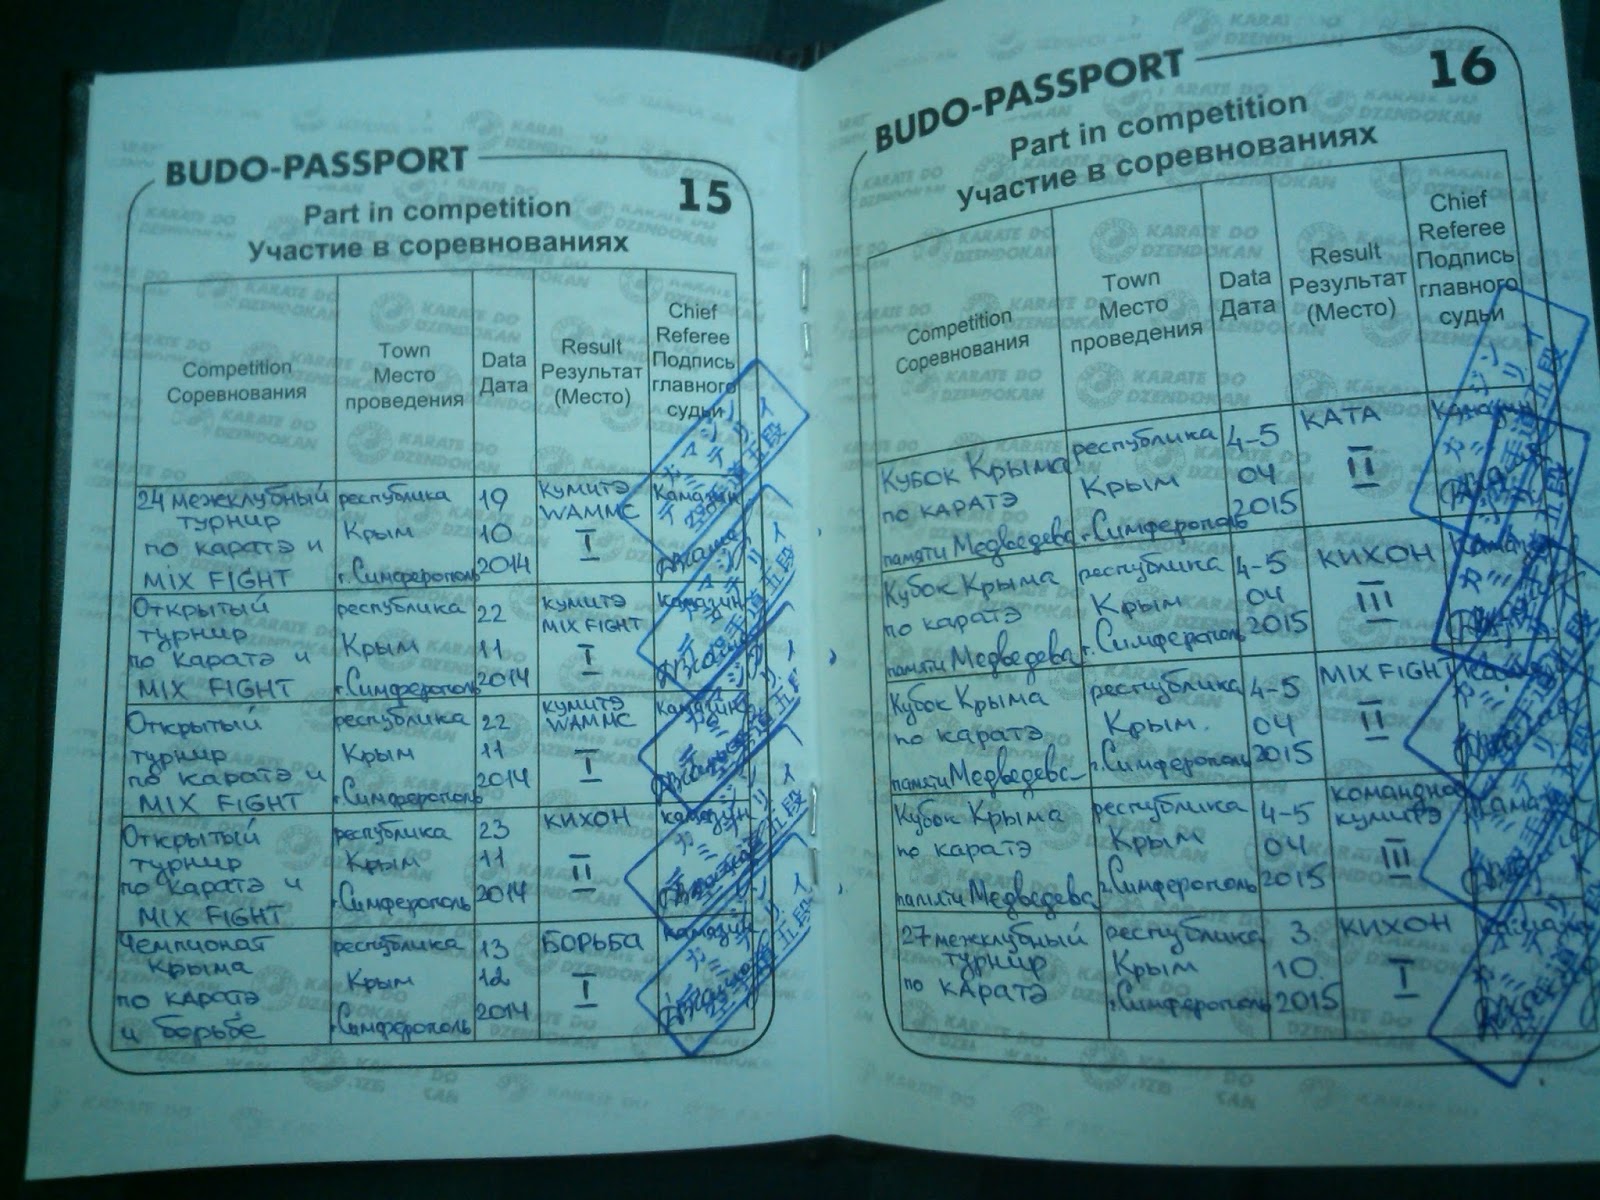 BUDO-PASSPORT
15
Part in competition
Участие в соревнованиях
Competition
Соревнования
Town
Место
проведения
Data
Дата
Result
Результат
(Место)
Chief
Referee
Подпись
главного
судьи
24 межклубный
турнир
по каратэ и
MIX FIGHT
республика
Крым
г.Симферополь
19
10
2014
КУМИТЭ
WAMMC
I
Камазин
Открытый
турнир
по каратэ и
MIX FIGHT
республика
Крым
г.Симферополь
22
11
2014
КУМИТЭ
MIX FIGHT
I
Камазин
Открытый
турнир
по каратэ и
MIX FIGHT
республика
Крым
г.Симферополь
22
11
2014
КУМИТЭ
WAMMC
I
Камазин
Открытый
турнир
по каратэ и
MIX FIGHT
республика
Крым
г.Симферополь
23
11
2014
КИХОН
II
Камазин
Чемпионат
Крыма
по каратэ
и борьбе
республика
Крым
г.Симферополь
13
12
2014
БОРЬБА
I
Камазин
BUDO-PASSPORT
16
Part in competition
Участие в соревнованиях
Competition
Соревнования
Town
Место
проведения
Data
Дата
Result
Результат
(Место)
Chief
Referee
Подпись
главного
судьи
Кубок Крыма
по каратэ
памяти Медведева
республика
Крым
г.Симферополь
4-5
04
2015
КАТА
II
Камазин
Кубок Крыма
по каратэ
памяти Медведева
республика
Крым
г.Симферополь
4-5
04
2015
КИХОН
III
Кубок Крыма
по каратэ
памяти Медведева
республика
Крым.
г.Симферополь
4-5
04
2015
MIX FIGHT
II
Кубок Крыма
по каратэ
памяти Медведева
республика
Крым
г.Симферополь
4-5
04
2015
командное
кумитэ
III
27 межклубный
турнир
по каратэ
республика
Крым
г.Симферополь
3.
10.
2015
КИХОН
I